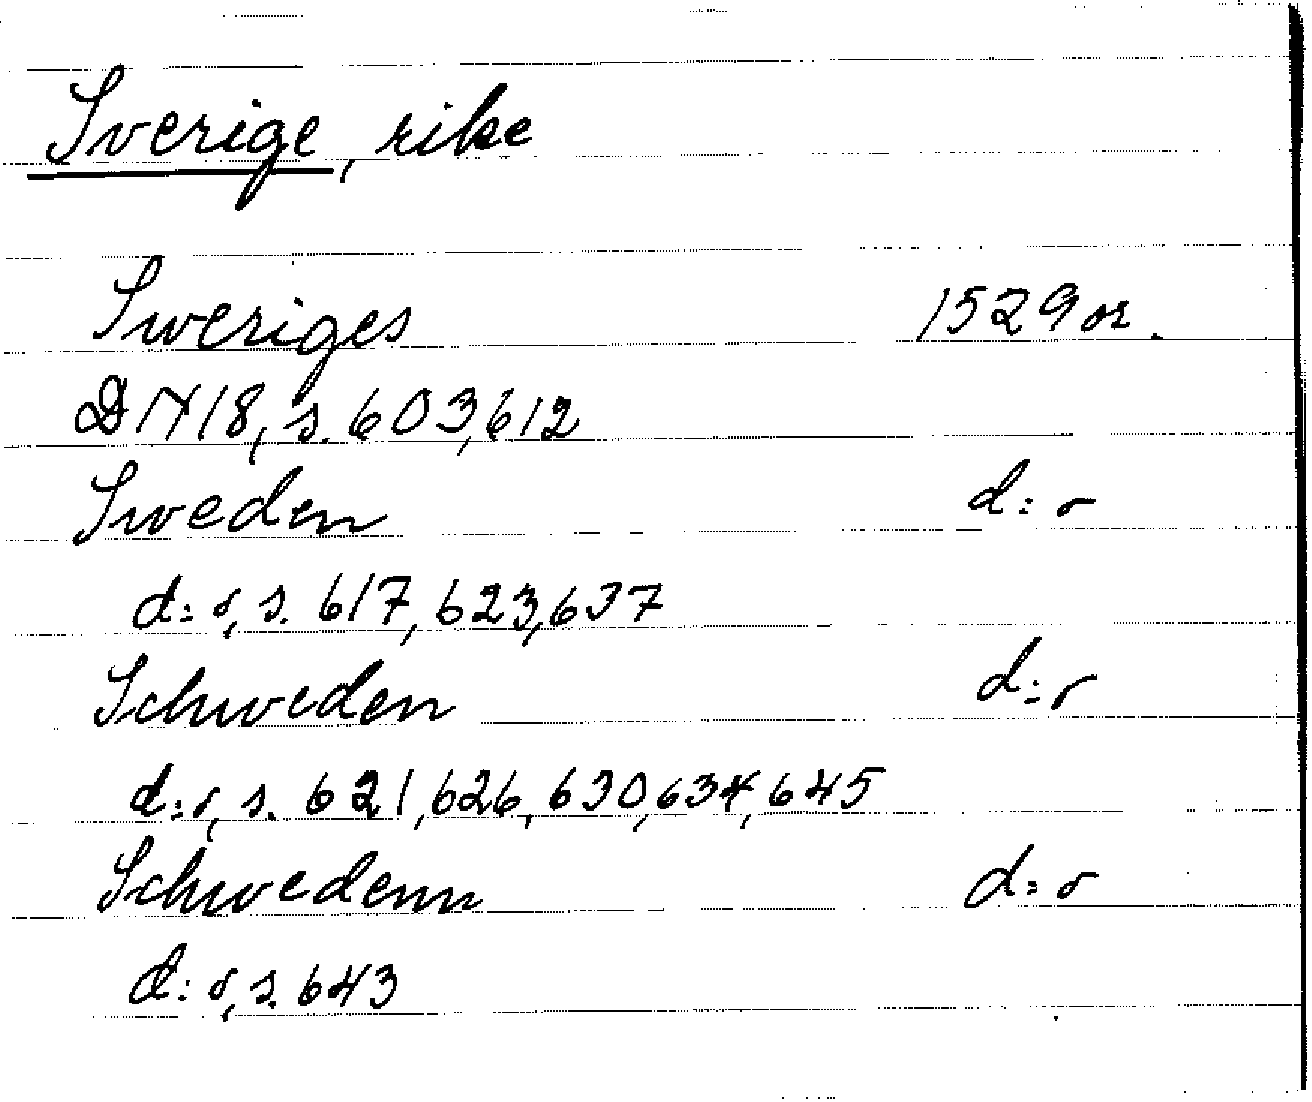 Sverige, rike
Sweriges 1529 or.
DN 18, s. 603, 612
Sweden d:o
d:o, s. 617, 623, 637
Schweden d:o
d:o, s. 621, 626, 630, 634, 645
Schwedenn d:o
d:o, s. 643